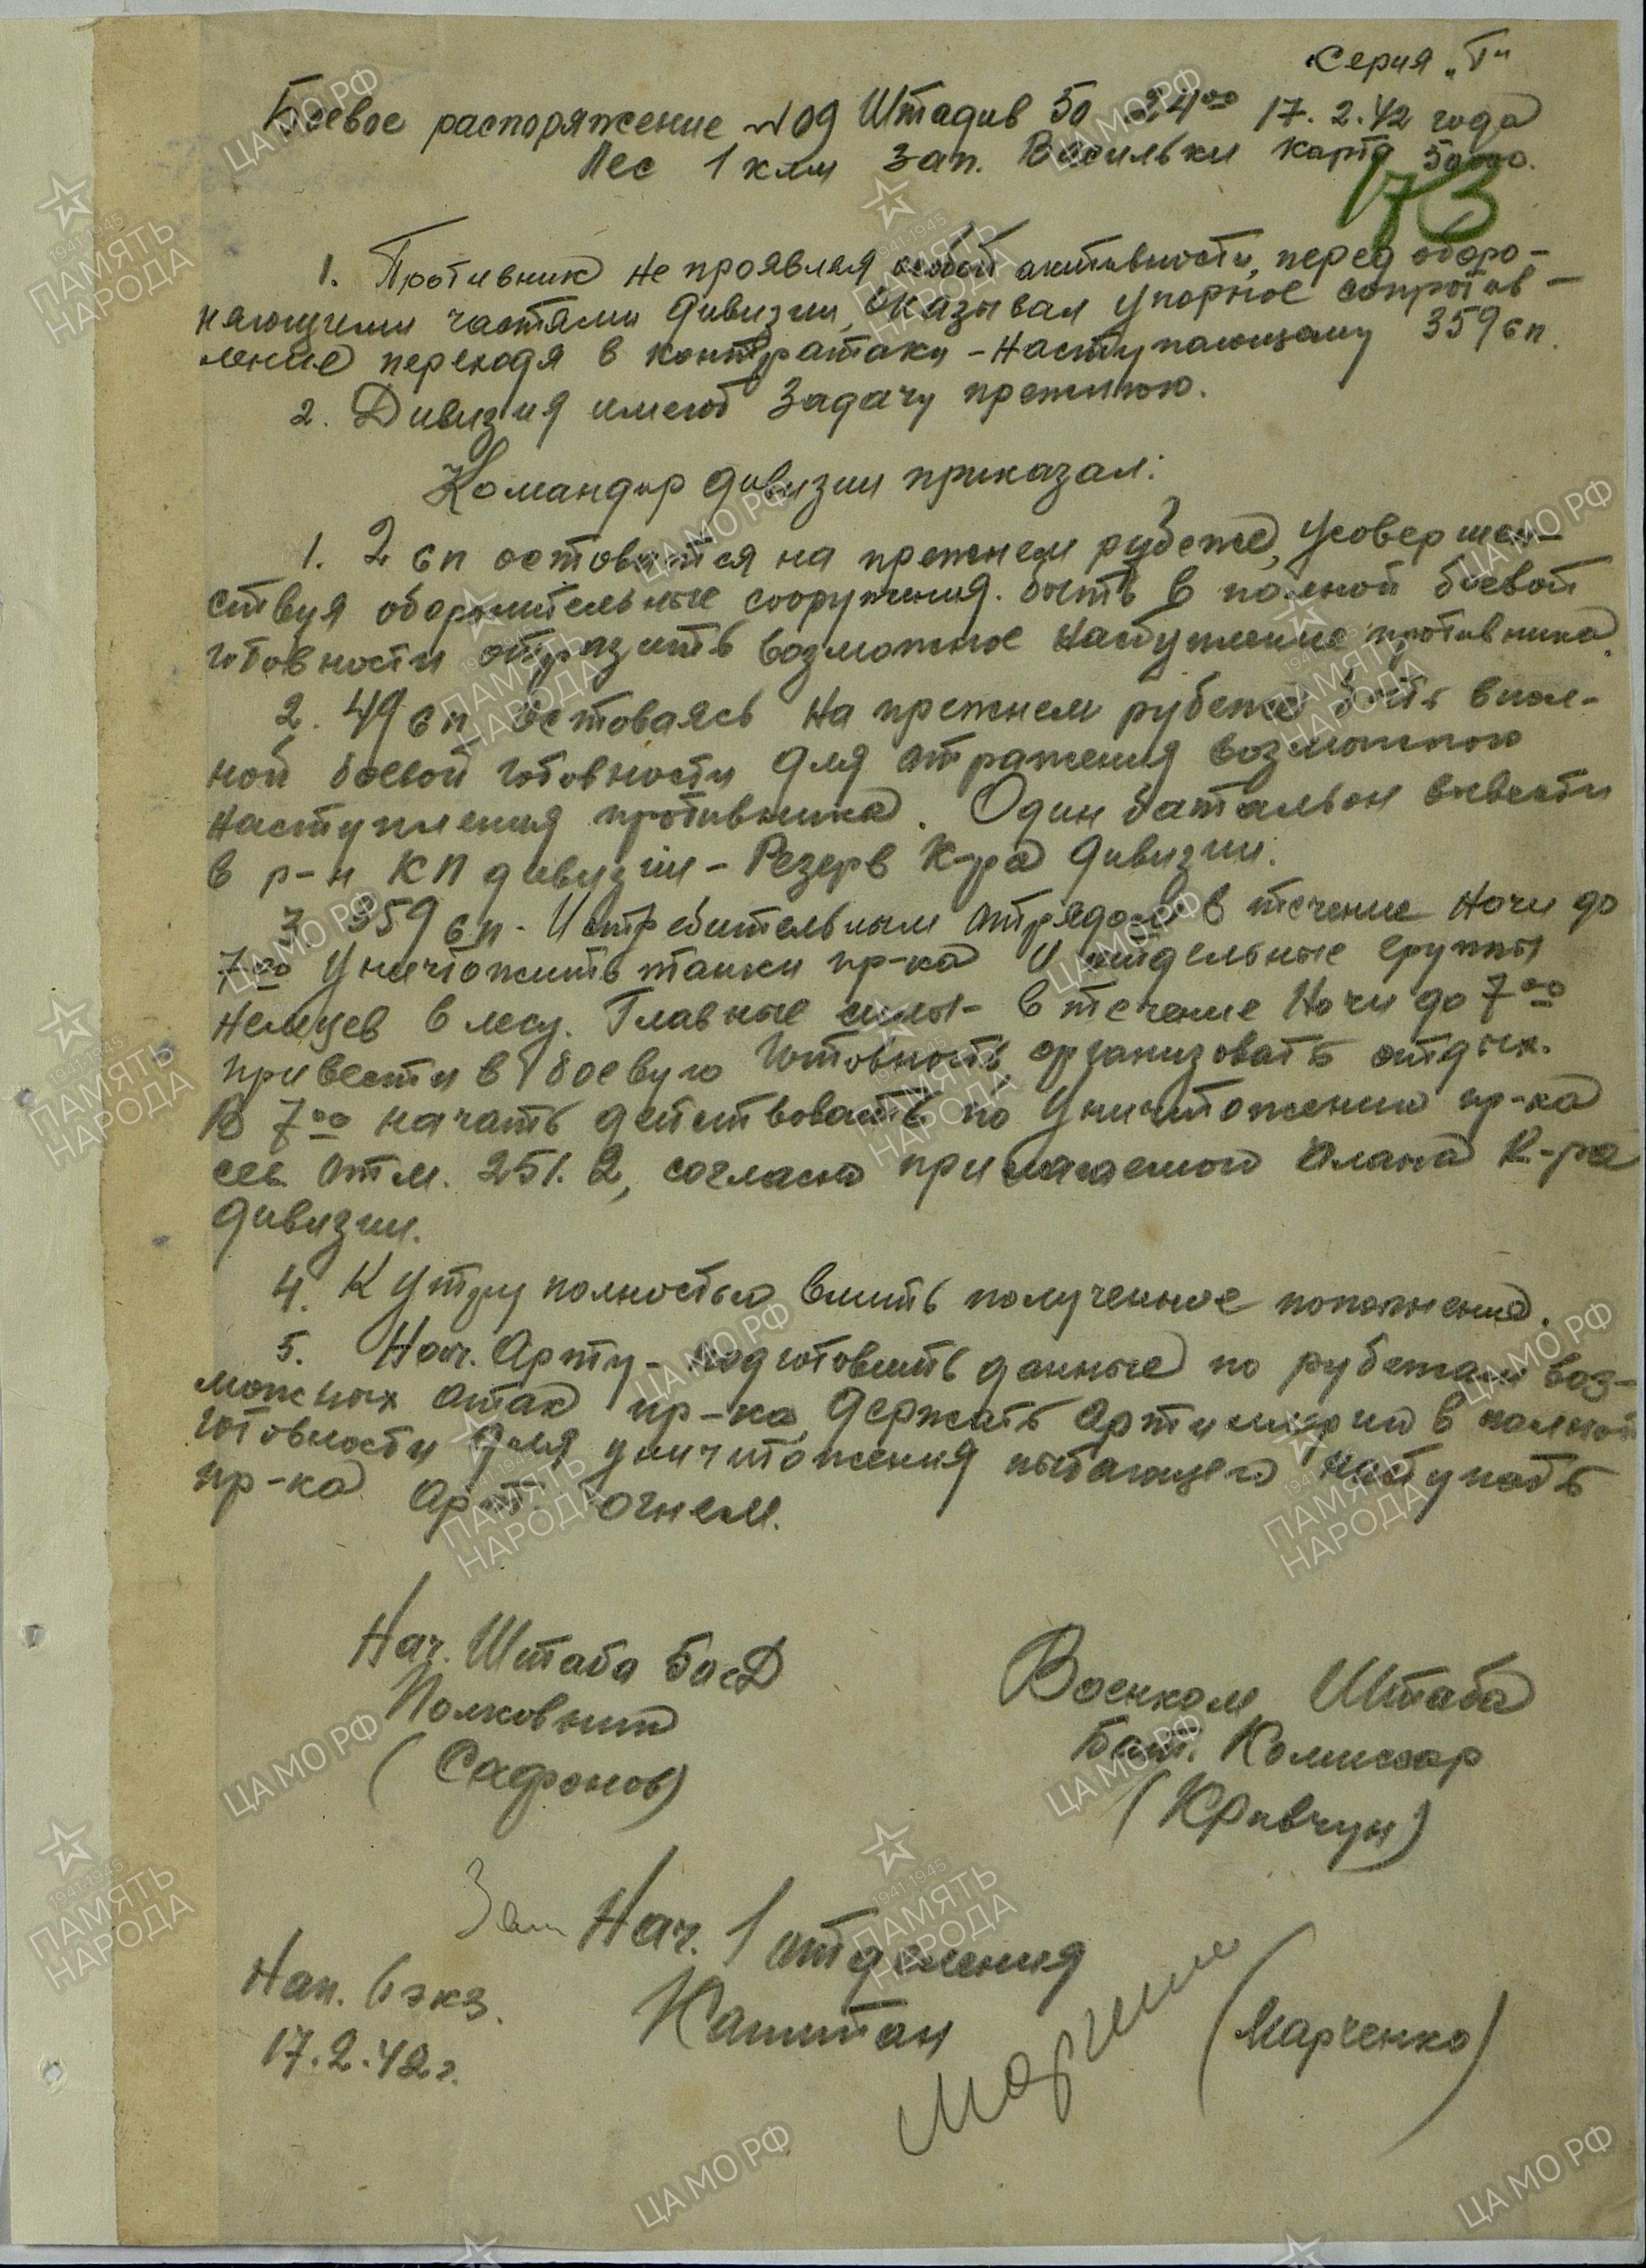 Серия „Г“
Боевое распоряжение №09 Штадив 50 24⁰⁰ 17.2.42 года
Лес 1 клм зап. Васильки карта 50000.
73
1. Противник не проявляя особой активности, перед оборо-
няющими частями дивизии, оказывал упорное сопротив-
ление переходя в контратаки - наступающему 359 сп.
2. Дивизия имеет задачу прежнюю.
Командир дивизии приказал:
1. 2 сп остоватся на прежнем рубеже, усовершен-
ствуя оборонительные сооружения. быть в полной боевой
готовности отразить возможное наступление противника.
2. 49 сп остоваясь на прежнем рубеже быть в пол-
ной боевой готовности для отражения возможного
наступления противника. Один батальон вывести
в р-н КП дивизии - Резерв К-ра дивизии.
3. 359 сп - Истребительным отрядом в течение ночи до
7⁰⁰ уничтожить танки пр-ка и отдельные группы
немцев в лесу. Главные силы - в течение ночи до 7⁰⁰
привести в боевую готовность, организовать отдых.
В 7⁰⁰ начать действовать по уничтожению пр-ка
сев. отм. 251.2, согласно прилагаемого плана К-ра
дивизии.
4. К утру полностью влить полученное пополнение.
5. Нач. Арту - подготовить данные по рубежам воз-
можных атак пр-ка, держать артиллерию в полной
готовности для уничтожения пытающего наступать
пр-ка арт. огнем.
Нач. Штаба 50 сд
Полковник
(Сафонов)
Военком Штаба
Бат. Комиссар
(Кравчун)
Зам Нач. 1 отделения
Капитан
(Марченко)
Нап. 6 экз.
17.2.42 г.
ЦАМО РФ
1941-1945
ПАМЯТЬ
НАРОДА